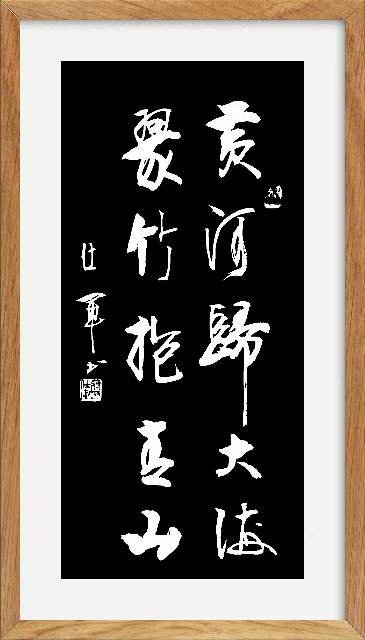 黄河歸大海
翠竹抱青山
仕軍书